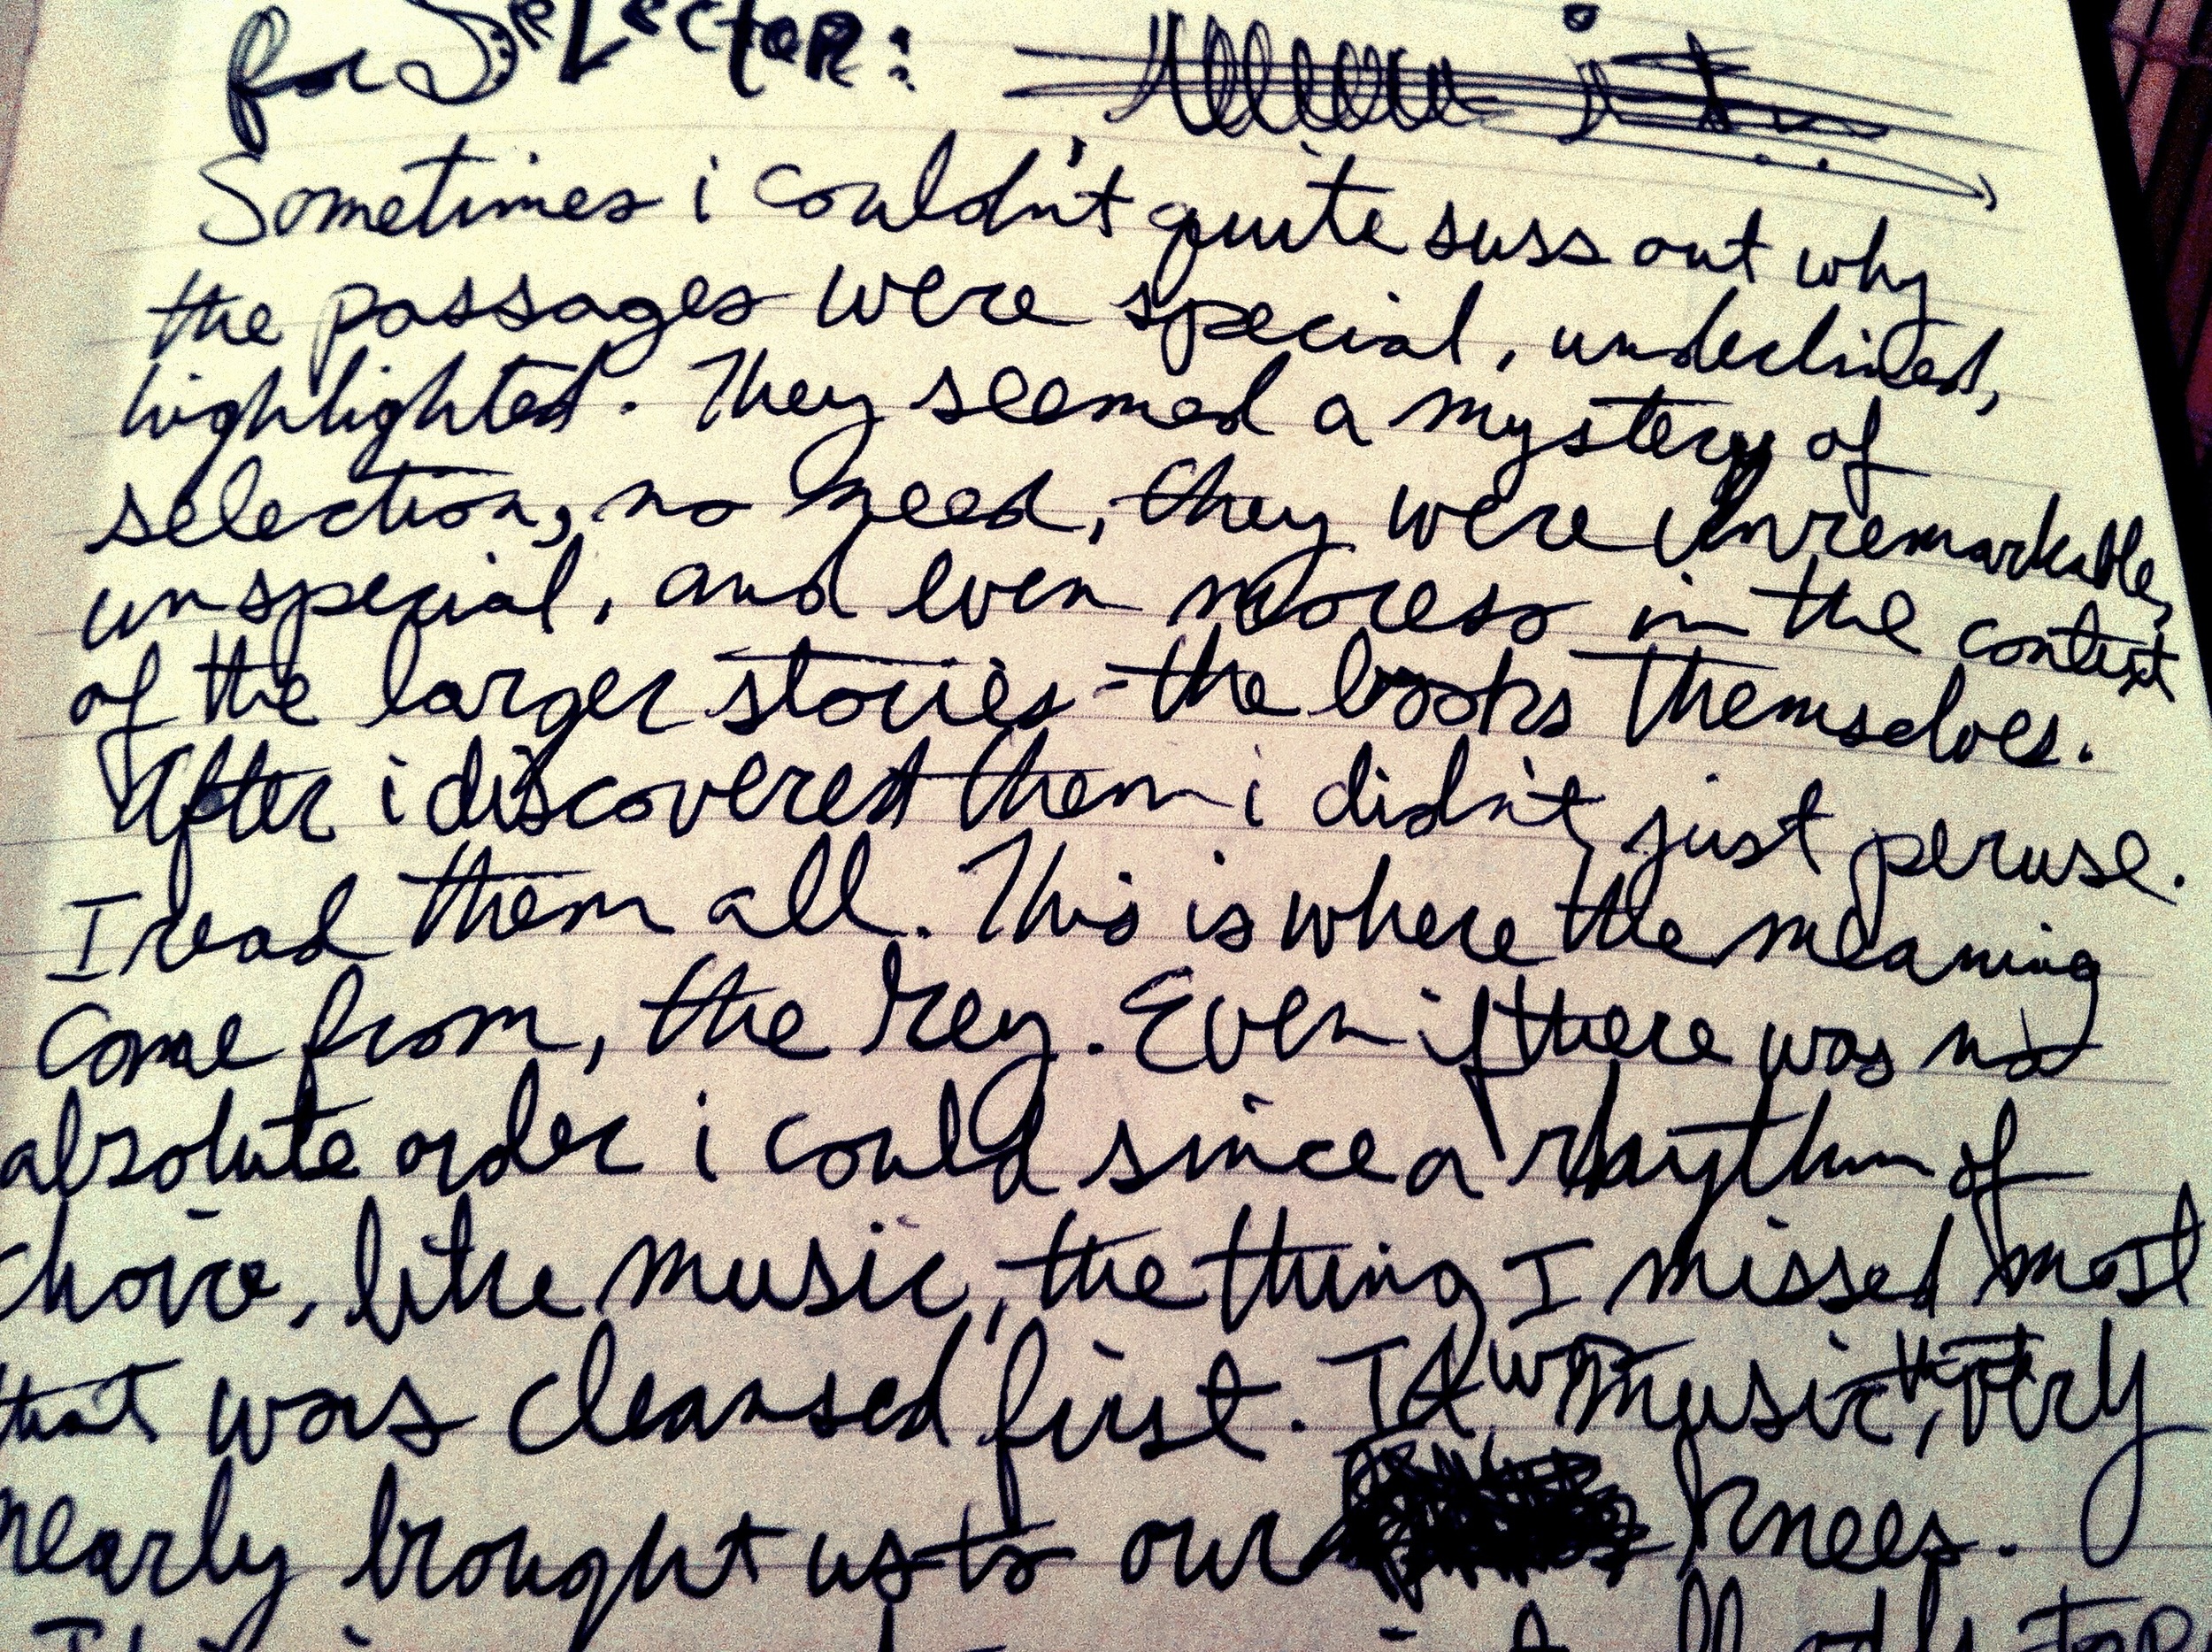 for Selector:
Sometimes i couldn't quite suss out why
the passages were special, underlined,
highlighted. They seemed a mystery of
selection, no need, they were unremarkable,
unspecial, and even moreso in the context
of the larger stories - the books themselves.
After i discovered them i didn't just peruse.
I read them all. This is where the meaning
come from, the key. Even if there was no
absolute order i could since a rhythm of
choice, like music, the thing I missed most
that was cleansed first. It was music that, very
nearly brought us to our knees.